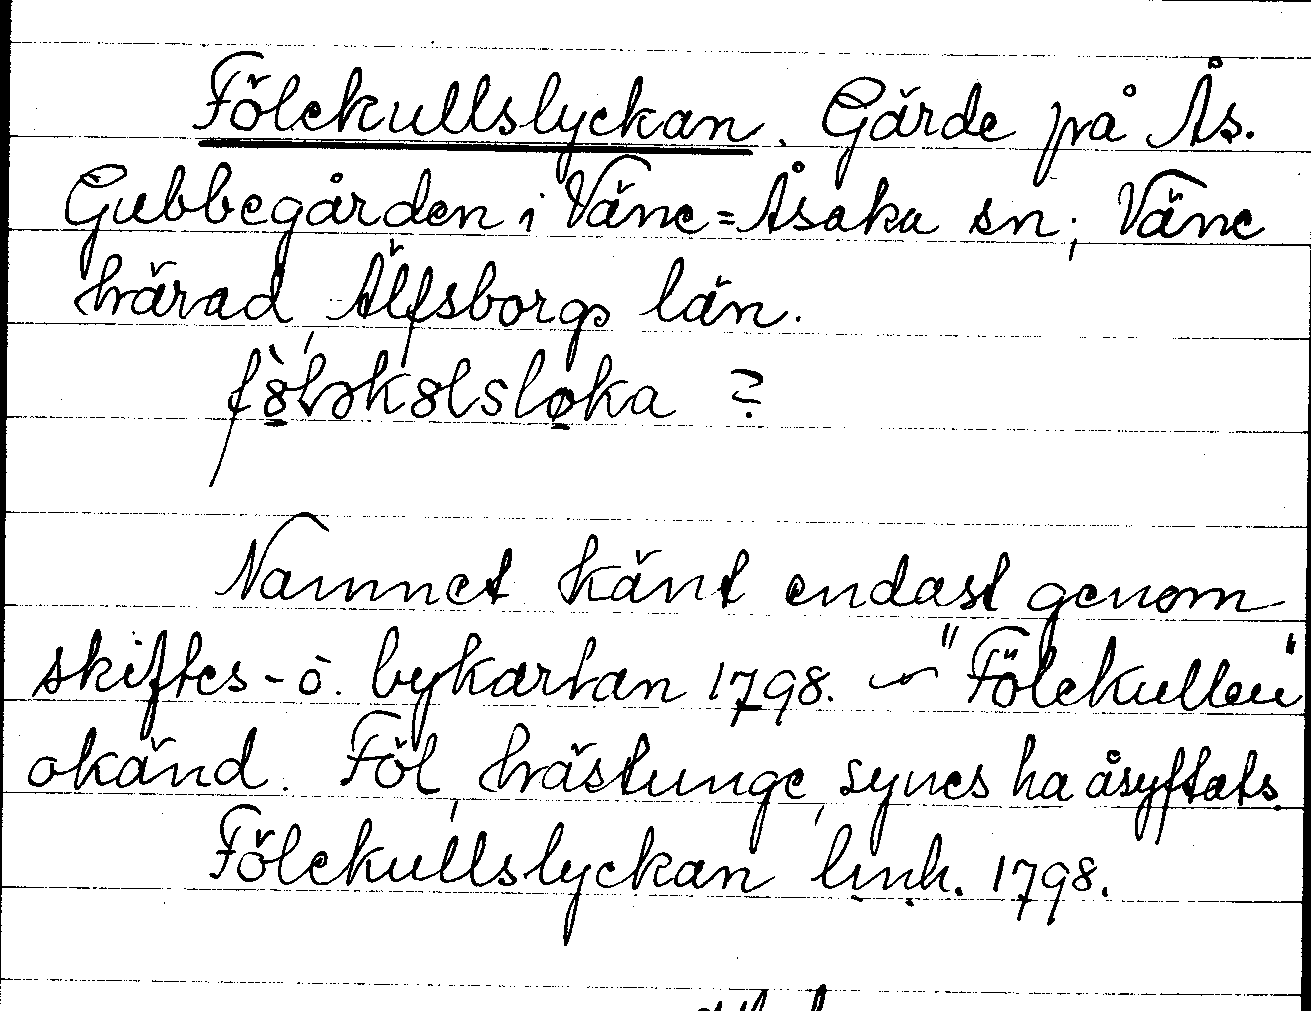 Fölekullslyckan. Gärde på Ås.
Gubbegården i Väne=Åsaka sn; Väne
härad, Älfsborgs län.
fò̤lɔkolsslø̱ka ?
Namnet känt endast genom
skiftes- o. bykartan 1798. – "Fölekullen"
okänd. Föl, hästunge, synes ha åsyftats.
Fölekullslyckan lmh. 1798.